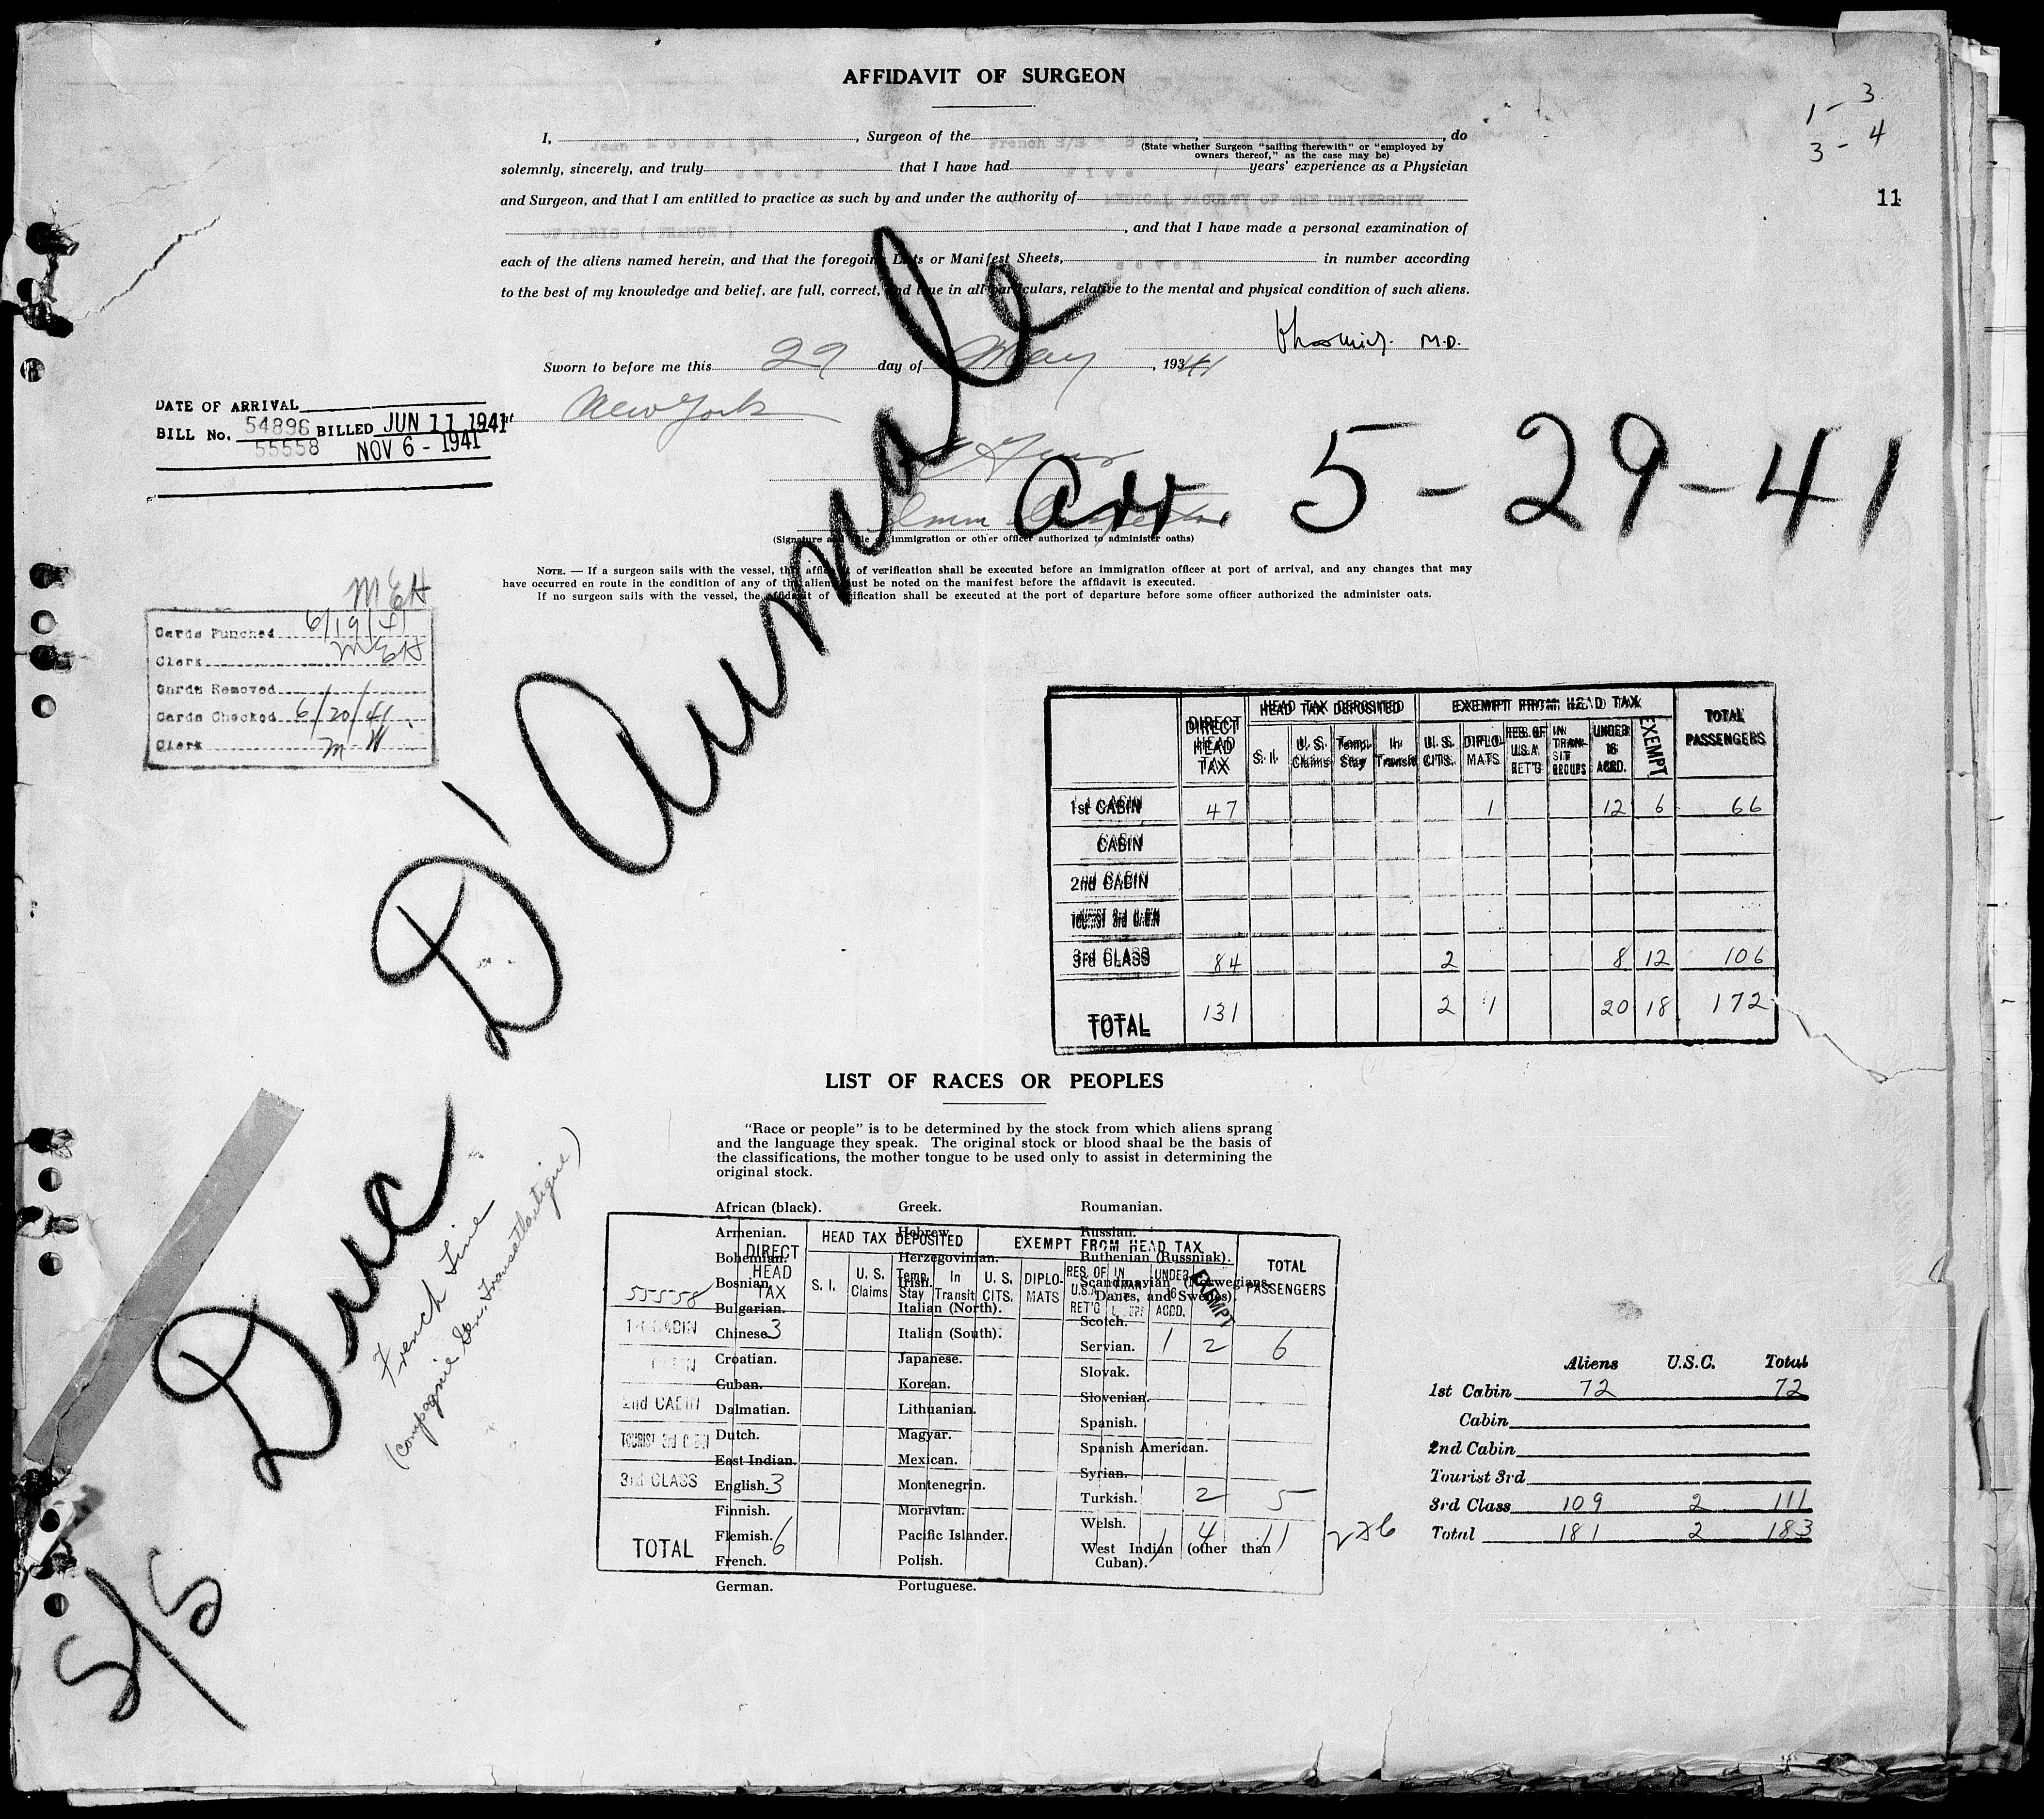 AFFIDAVIT OF SURGEON
1 - 3
3 - 4
11
I, Jean, Surgeon of the French S/S, do
(State whether Surgeon "sailing therewith" or "employed by
owners thereof," as the case may be)
solemnly, sincerely, and truly swear that I have had five years' experience as a Physician
and Surgeon, and that I am entitled to practice as such by and under the authority of MEDICAL FACULTY OF THE UNIVERSITY
OF PARIS ( FRANCE ), and that I have made a personal examination of
each of the aliens named herein, and that the foregoing Lists or Manifest Sheets, seven in number according
to the best of my knowledge and belief, are full, correct, and true in all particulars, relative to the mental and physical condition of such aliens.
M.D.
Sworn to before me this 29 day of May, 19341
at New York
DATE OF ARRIVAL
BILL No. 54896 BILLED JUN 11 1941
55558 NOV 6 - 1941
arr 5-29-41
Imm Inspector
(Signature and title of Immigration or other officer authorized to administer oaths)
NOTE. — If a surgeon sails with the vessel, this affidavit of verification shall be executed before an immigration officer at port of arrival, and any changes that may
have occurred en route in the condition of any of the aliens must be noted on the manifest before the affidavit is executed.
If no surgeon sails with the vessel, the affidavit of verification shall be executed at the port of departure before some officer authorized the administer oats.
MEH
Cards Punched 6/19/41
Clerk MEH
Cards Removed
Cards Checked 6/20/41
Clerk M W
S/S Duc D'Aumale
French Line
(Compagnie Gen. Transatlantique)
DIRECT HEAD TAX HEAD TAX DEPOSITED EXEMPT FROM HEAD TAX TOTAL PASSENGERS
S. I. U. S. Claims Temp. Stay In Transit U. S. CITS. DIPLO- MATS RES. OF U.S.A. RET'G IN TRAN- SIT GROUPS UNDER 16 ACCD. EXEMPT
1st CABIN 47 1 12 6 66
CABIN
2nd CABIN
TOURIST 3rd CABIN
3rd CLASS 84 2 8 12 106
TOTAL 131 2 1 20 18 172
LIST OF RACES OR PEOPLES
"Race or people" is to be determined by the stock from which aliens sprang
and the language they speak. The original stock or blood shaal be the basis of
the classifications, the mother tongue to be used only to assist in determining the
original stock.
African (black).
Armenian.
Bohemian.
Bosnian.
Bulgarian.
Chinese.
Croatian.
Cuban.
Dalmatian.
Dutch.
East Indian.
English.
Finnish.
Flemish.
French.
German.
Greek.
Hebrew.
Herzegovinian.
Irish.
Italian (North).
Italian (South).
Japanese.
Korean.
Lithuanian.
Magyar.
Mexican.
Montenegrin.
Moravian.
Pacific Islander.
Polish.
Portuguese.
Roumanian.
Russian.
Ruthenian (Russniak).
Scandinavian (Norwegians,
Danes, and Swedes).
Scotch.
Servian.
Slovak.
Slovenian.
Spanish.
Spanish American.
Syrian.
Turkish.
Welsh.
West Indian (other than
Cuban).
DIRECT HEAD TAX HEAD TAX DEPOSITED EXEMPT FROM HEAD TAX TOTAL PASSENGERS
55558 S. I. U. S. Claims Temp. Stay In Transit U. S. CITS. DIPLO- MATS RES. OF U.S.A. RET'G IN UNDER 16 ACCD. EXEMPT
1st CABIN 3 1 2 6
CABIN
2nd CABIN
TOURIST 3rd CABIN
3rd CLASS 3 2 5
TOTAL 6 1 4 11
Aliens U.S.C. Total
1st Cabin 72 72
Cabin
2nd Cabin
Tourist 3rd
3rd Class 109 2 111
Total 181 2 183